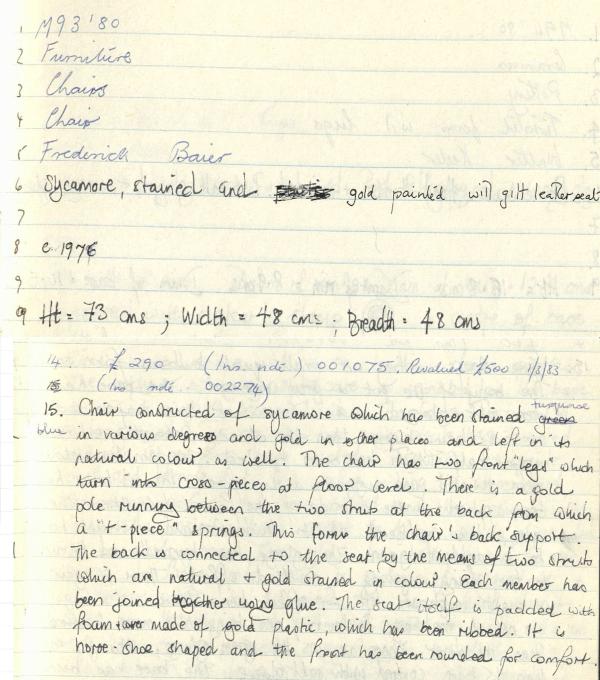 1 M93'80
2 Furniture
3 Chairs
4 Chair
5 Frederick Baier
6 Sycamore, stained and gold painted will gilt leather seat
7
8 c 1976
9
9 Ht = 73 cms ; Width = 48 cms ; Breadth = 48 cms
14 £290 (Ins. ndė) 001075. Revalued £500 1/3/83
(Ins ndė 002274)
15. Chair constructed of sycamore which has been stained turquoise green
blue in various degrees and gold in other places and left in its
natural colour as well. The chair has two front "legs" which
turn into cross-pieces at floor level. There is a gold
pole running between the two struts at the back from which
a "t-piece" springs. This forms the chair's back support.
The back is connected to the seat by the means of two struts
which are natural + gold stained in colour. Each member has
been joined together using glue. The seat itself is padded with
foam made of gold plastic, which has been ribbed. It is
horse-shoe shaped and the front has been rounded for comfort.